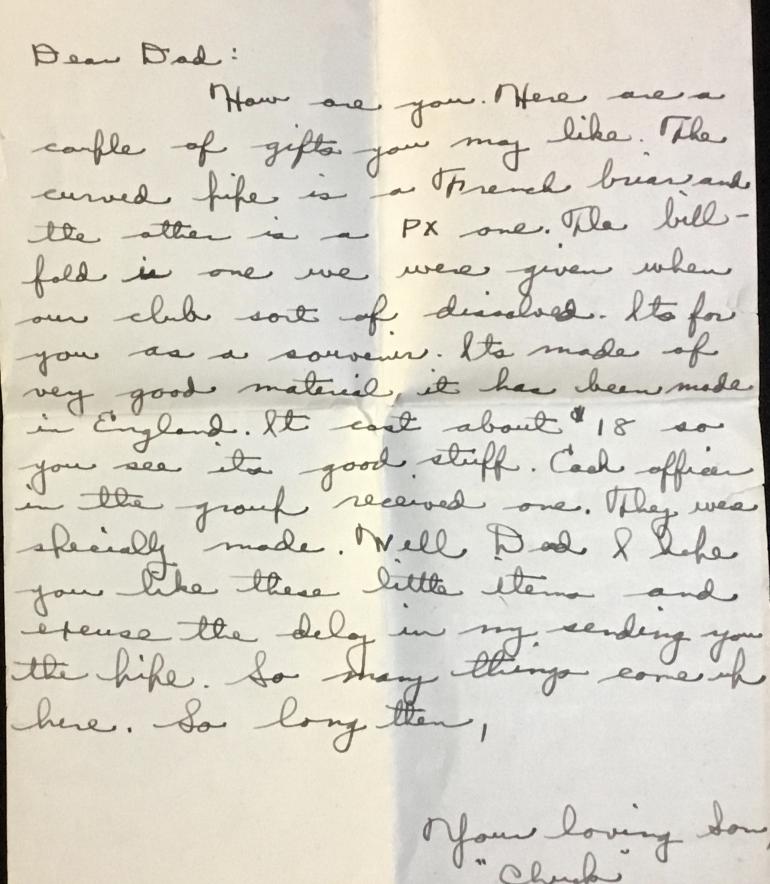 Dear Dad:
How are you. Here are a
couple of gifts you may like. The
curved pipe is a French briar and
the other is a PX one. The bill-
fold is one we were given when
our club sort of dissolved. Its for
you as a souvenir. Its made of
very good material, it has been made
in England. It cost about $18 so
you see its good stuff. Each officer
in the group received one. They were
specially made. Well Dad I hope
you like these little items and
excuse the delay in my sending you
the pipe. So many things come up
here. So long then,
Your loving Son,
"Chuck"